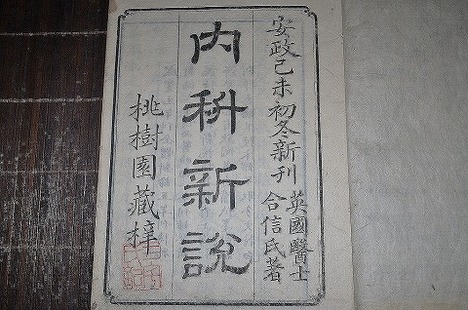 安政己未初冬新刊
英國醫士
合信氏著
內科新說
桃樹園藏梓